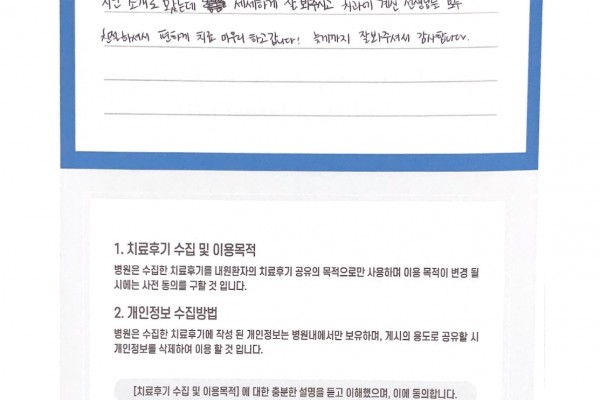 지인 소개로 왔는데 세세하게 잘 봐주시고 치과에 계신 선생님들 모두
친절하셔서 편하게 치료 마무리 하고갑니다! 늦게까지 잘봐주셔서 감사합니다.
1. 치료후기 수집 및 이용목적
병원은 수집한 치료후기를 내원환자의 치료후기 공유의 목적으로만 사용하며 이용 목적이 변경 될
시에는 사전 동의를 구할 것 입니다.
2. 개인정보 수집방법
병원은 수집한 치료후기에 작성 된 개인정보는 병원내에서만 보유하며, 게시의 용도로 공유할 시
개인정보를 삭제하여 이용 할 것 입니다.
[치료후기 수집 및 이용목적] 에 대한 충분한 설명을 듣고 이해했으며, 이에 동의합니다.